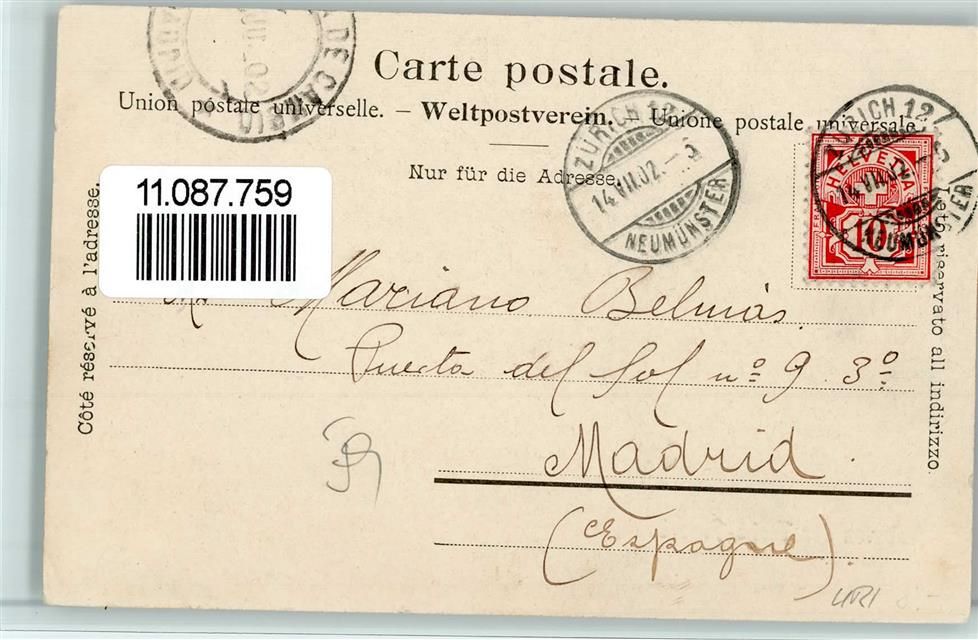 Carte postale.
Union postale universelle. – Weltpostverein. – Unione postale universale.
Nur für die Adresse.
ZÜRICH 12
14.VII.02.-5
NEUMÜNSTER
ZÜRICH 12
14.VII.02
NEUMÜNSTER
HELVETIA
10
11.087.759
Côté réservé à l'adresse.
Lato riservato all indirizzo.
Mariano Belmás.
Puerta del Sol nº 9. 3º
Madrid.
(Espagne).
URI